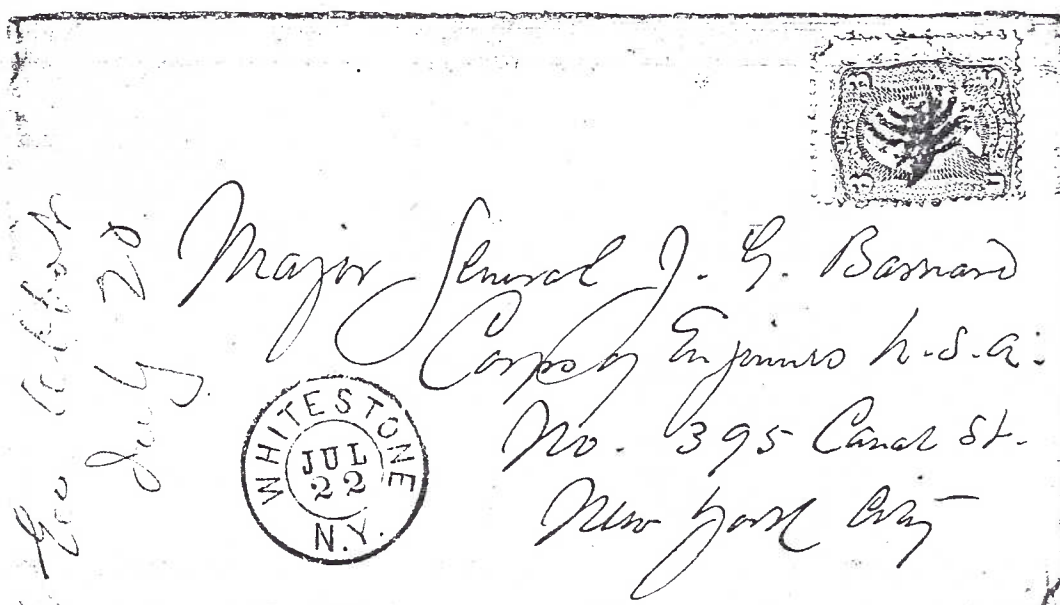 Major General J. G. Barnard
Corps of Engineers U.S.A.
No. 395 Canal St.
New York City
WHITESTONE
JUL
22
N.Y.
July 20